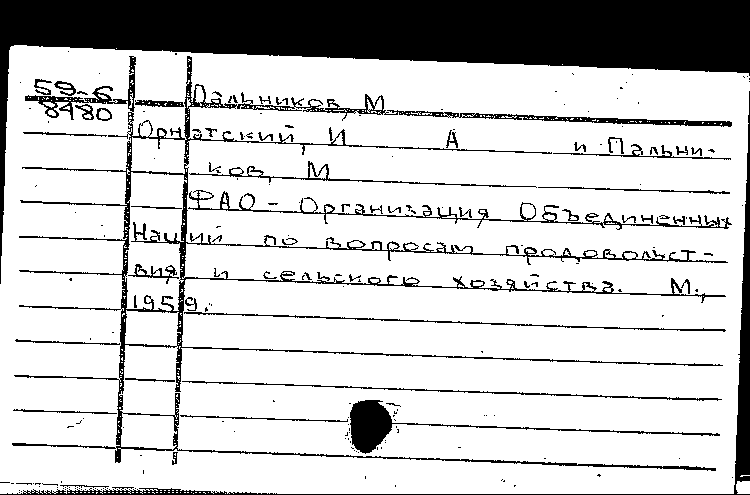 59-6
8480
Пальников, М
Орнатский, И А и Пальни-
ков, М
ФАО - Организация Объединенных
Наций по вопросам продовольст-
вия и сельского хозяйства. М.,
1959.